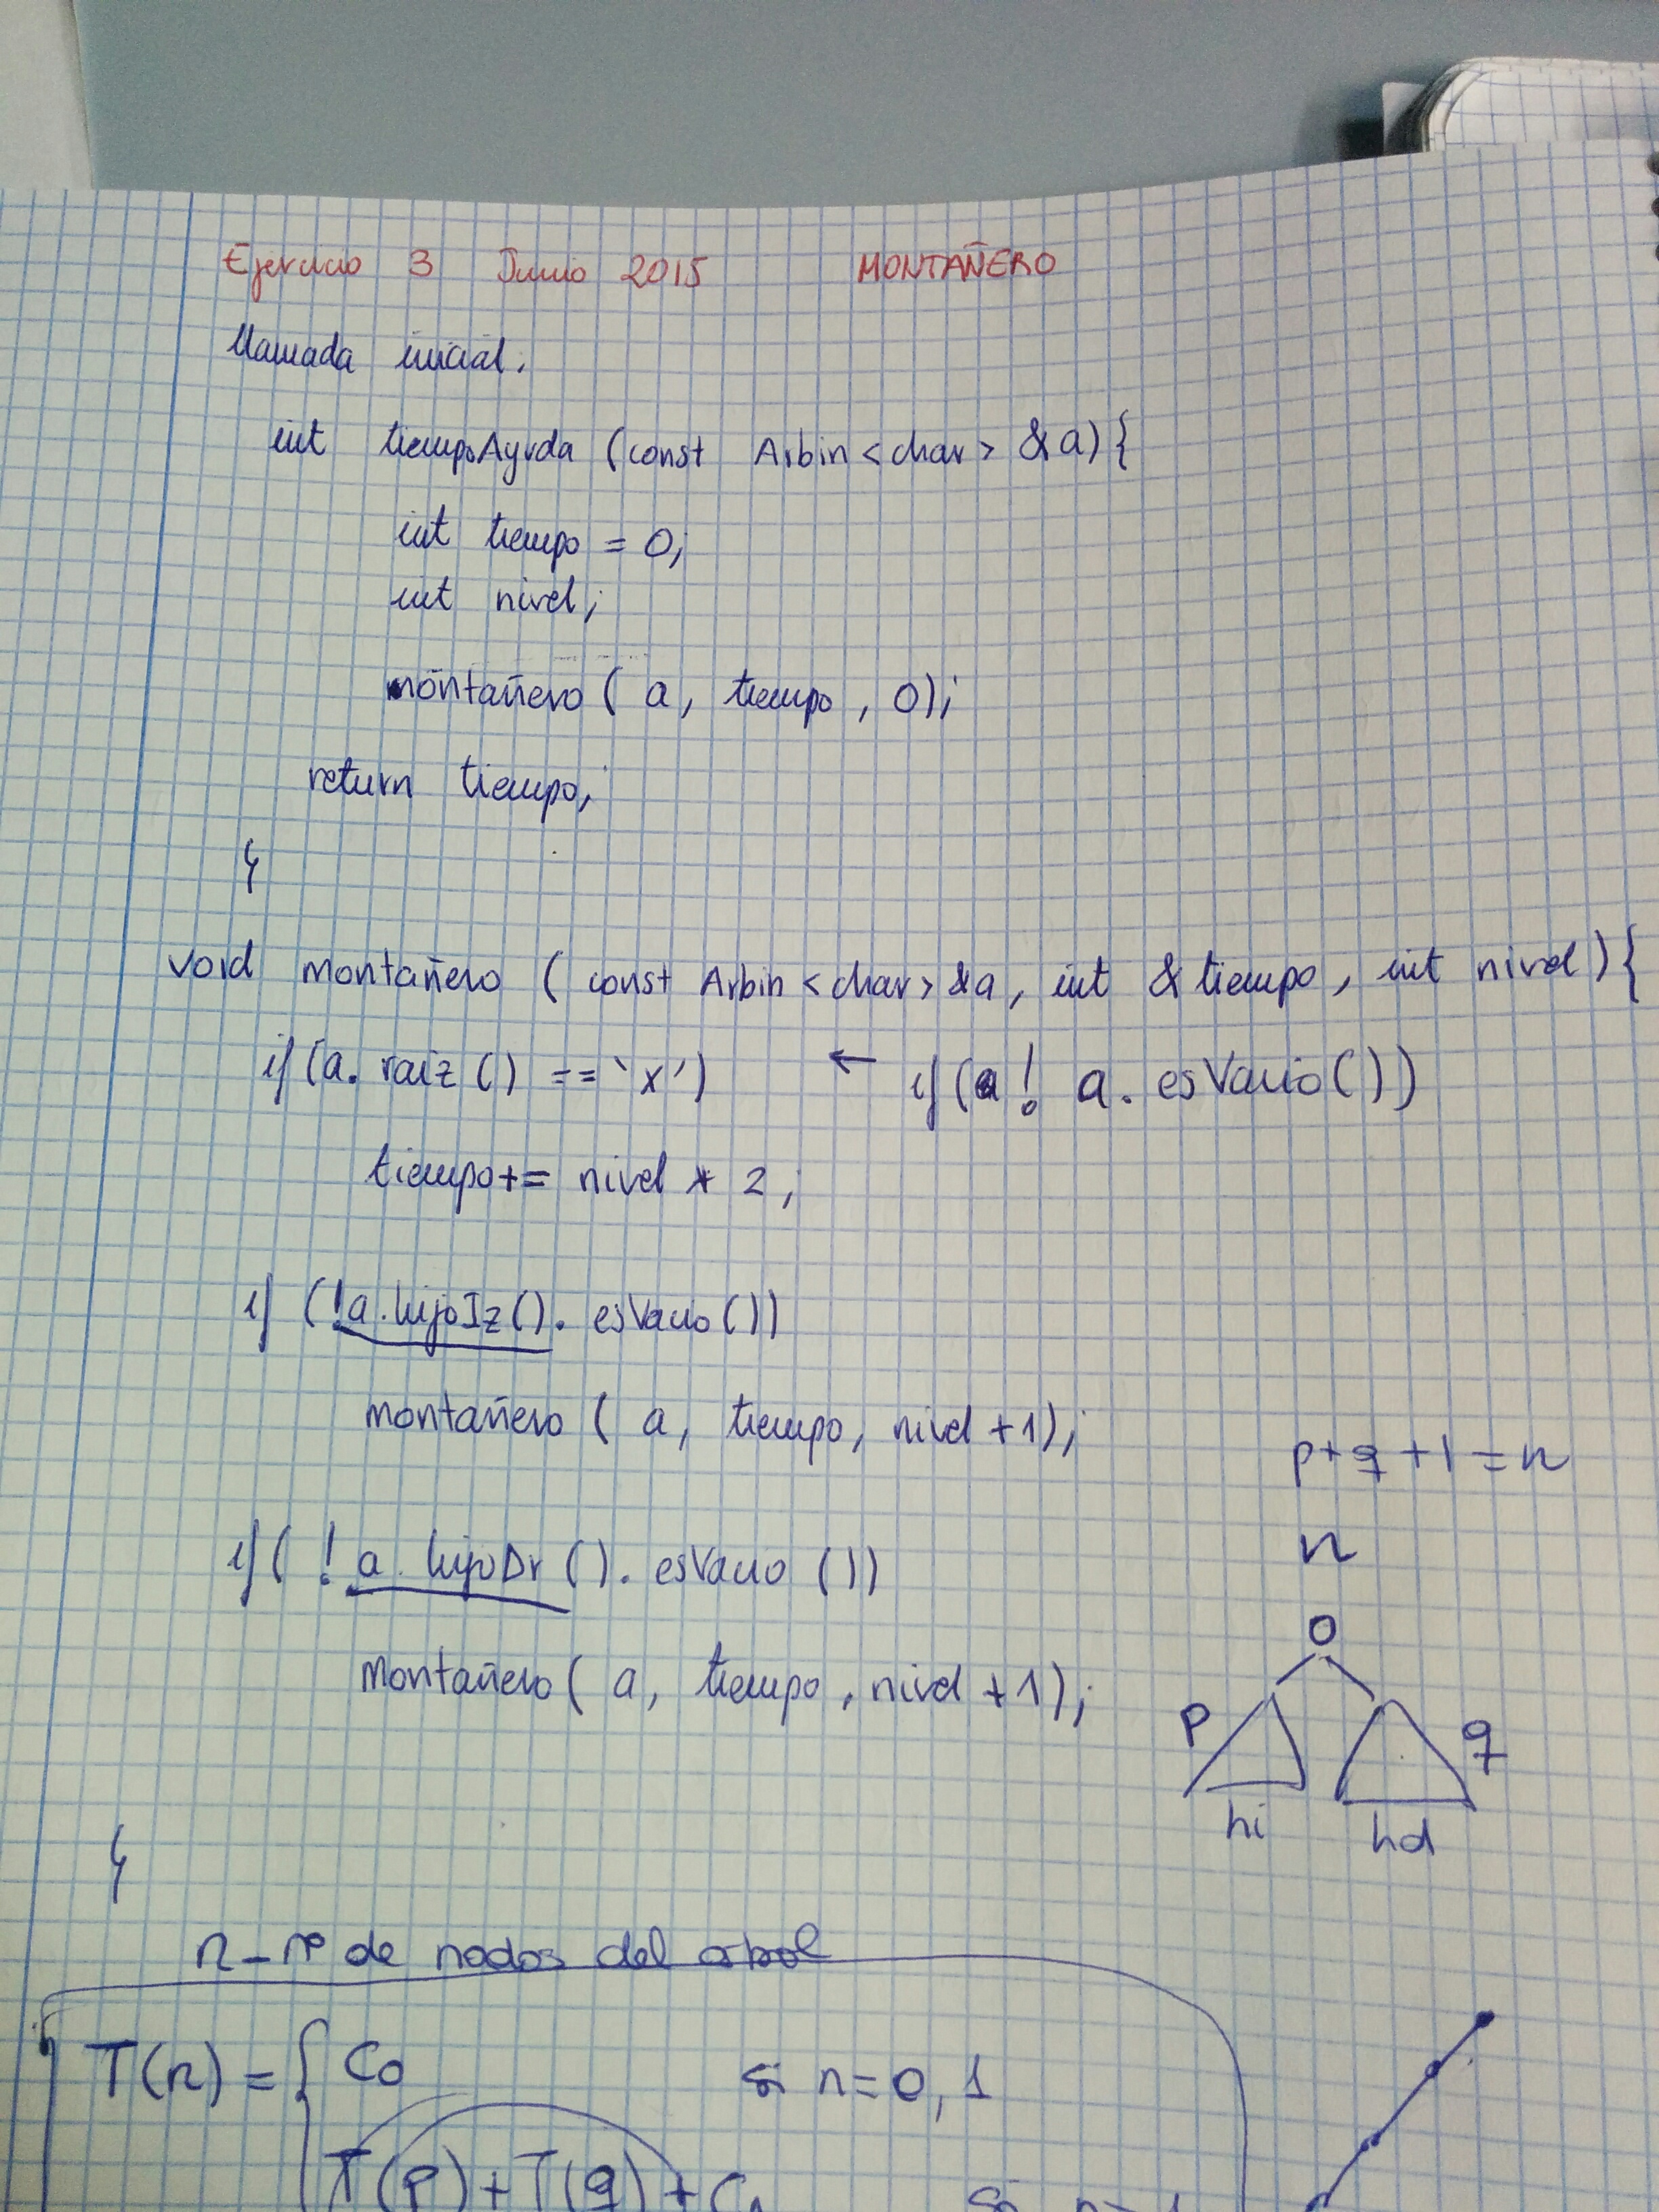 Ejercicio 3 Junio 2015 MONTAÑERO
llamada inicial.
int tiempoAyuda (const Arbin<char> &a){
int tiempo = 0;
int nivel;
montañero ( a, tiempo, 0);
return tiempo;
}
void montañero ( const Arbin<char> &a, int &tiempo, int nivel){
if (a. raiz () == 'x') ← if (! a. esVacio())
tiempo += nivel * 2;
if (!a.hijoIz(). esVacio())
montañero ( a, tiempo, nivel +1);
p+q+1=n
if ( ! a. hijoDr (). esVacio ())
n
montañero ( a, tiempo, nivel +1);
p q
hi hd
}
n - nº de nodos del arbol
T(n) = { C0 si n=0, 1
T(p)+T(q)+